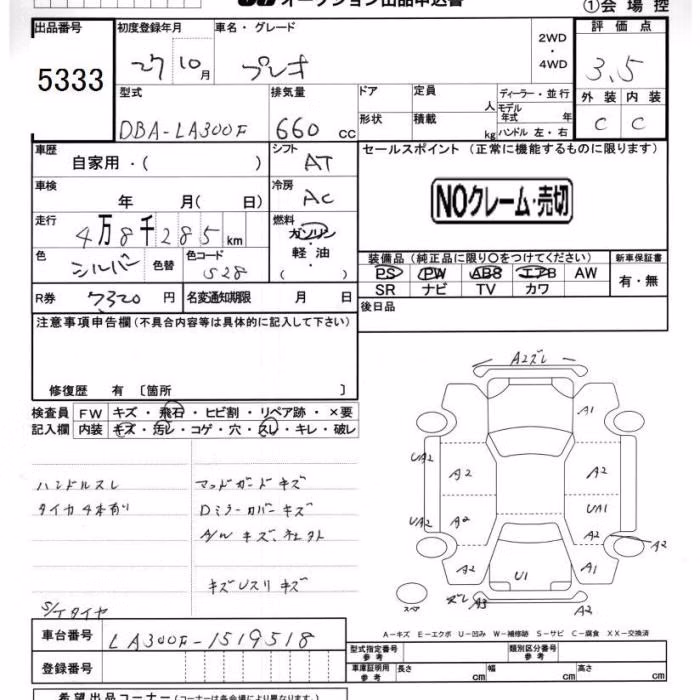 オークション出品申込書 ①会場控
出品番号 初度登録年月 車名・グレード 2WD・4WD 評価点
5333 27 10月 プレオ 3.5
型式 排気量 ドア 定員 人 ディーラー・並行 外装 内装
DBA-LA300F 660 cc 形状 積載 kg モデル年式 年 ハンドル 左・右 C C
車歴 自家用・( ) シフト AT セールスポイント(正常に機能するものに限ります)
車検 年 月( 日) 冷房 AC NOクレーム・売切
走行 4万8千285km 燃料 ガソリン・軽油( )
色 シルバー 色替 色コード S28 装備品(純正品に限り○をつけてください) 新車保証書
PS PW ABS エアB AW 有・無
SR ナビ TV カワ
R券 7320円 名変通知期限 月 日 後日品
注意事項申告欄(不具合内容等は具体的に記入して下さい)
修復歴 有 〔箇所 〕
検査員 FW キズ・飛石・ヒビ割・リペア跡・×要
記入欄 内装 キズ・汚レ・コゲ・穴・スレ・キレ・破レ
A2ズレ
A1
UA2 A2 A2
UA2 A2 UA1
A2 A2
A2 U1 A1
スペア ズレ A3 A2
ハンドルスレ マッドガードキズ
タイヤ4本有り Dミラーカバーキズ
A/Wキズ、
キズUスリキズ
S/Tタイヤ
A-キズ E-エクボ U-凹み W-補修跡 S-サビ C-腐食 XX-交換済
車台番号 LA300F-1519518
登録番号
型式指定番号 参考 類別区分番号 参考
車庫証明用 参考 長さ cm 幅 cm 高さ cm
希望出品コーナー(コーナーは各会場により異なります。)